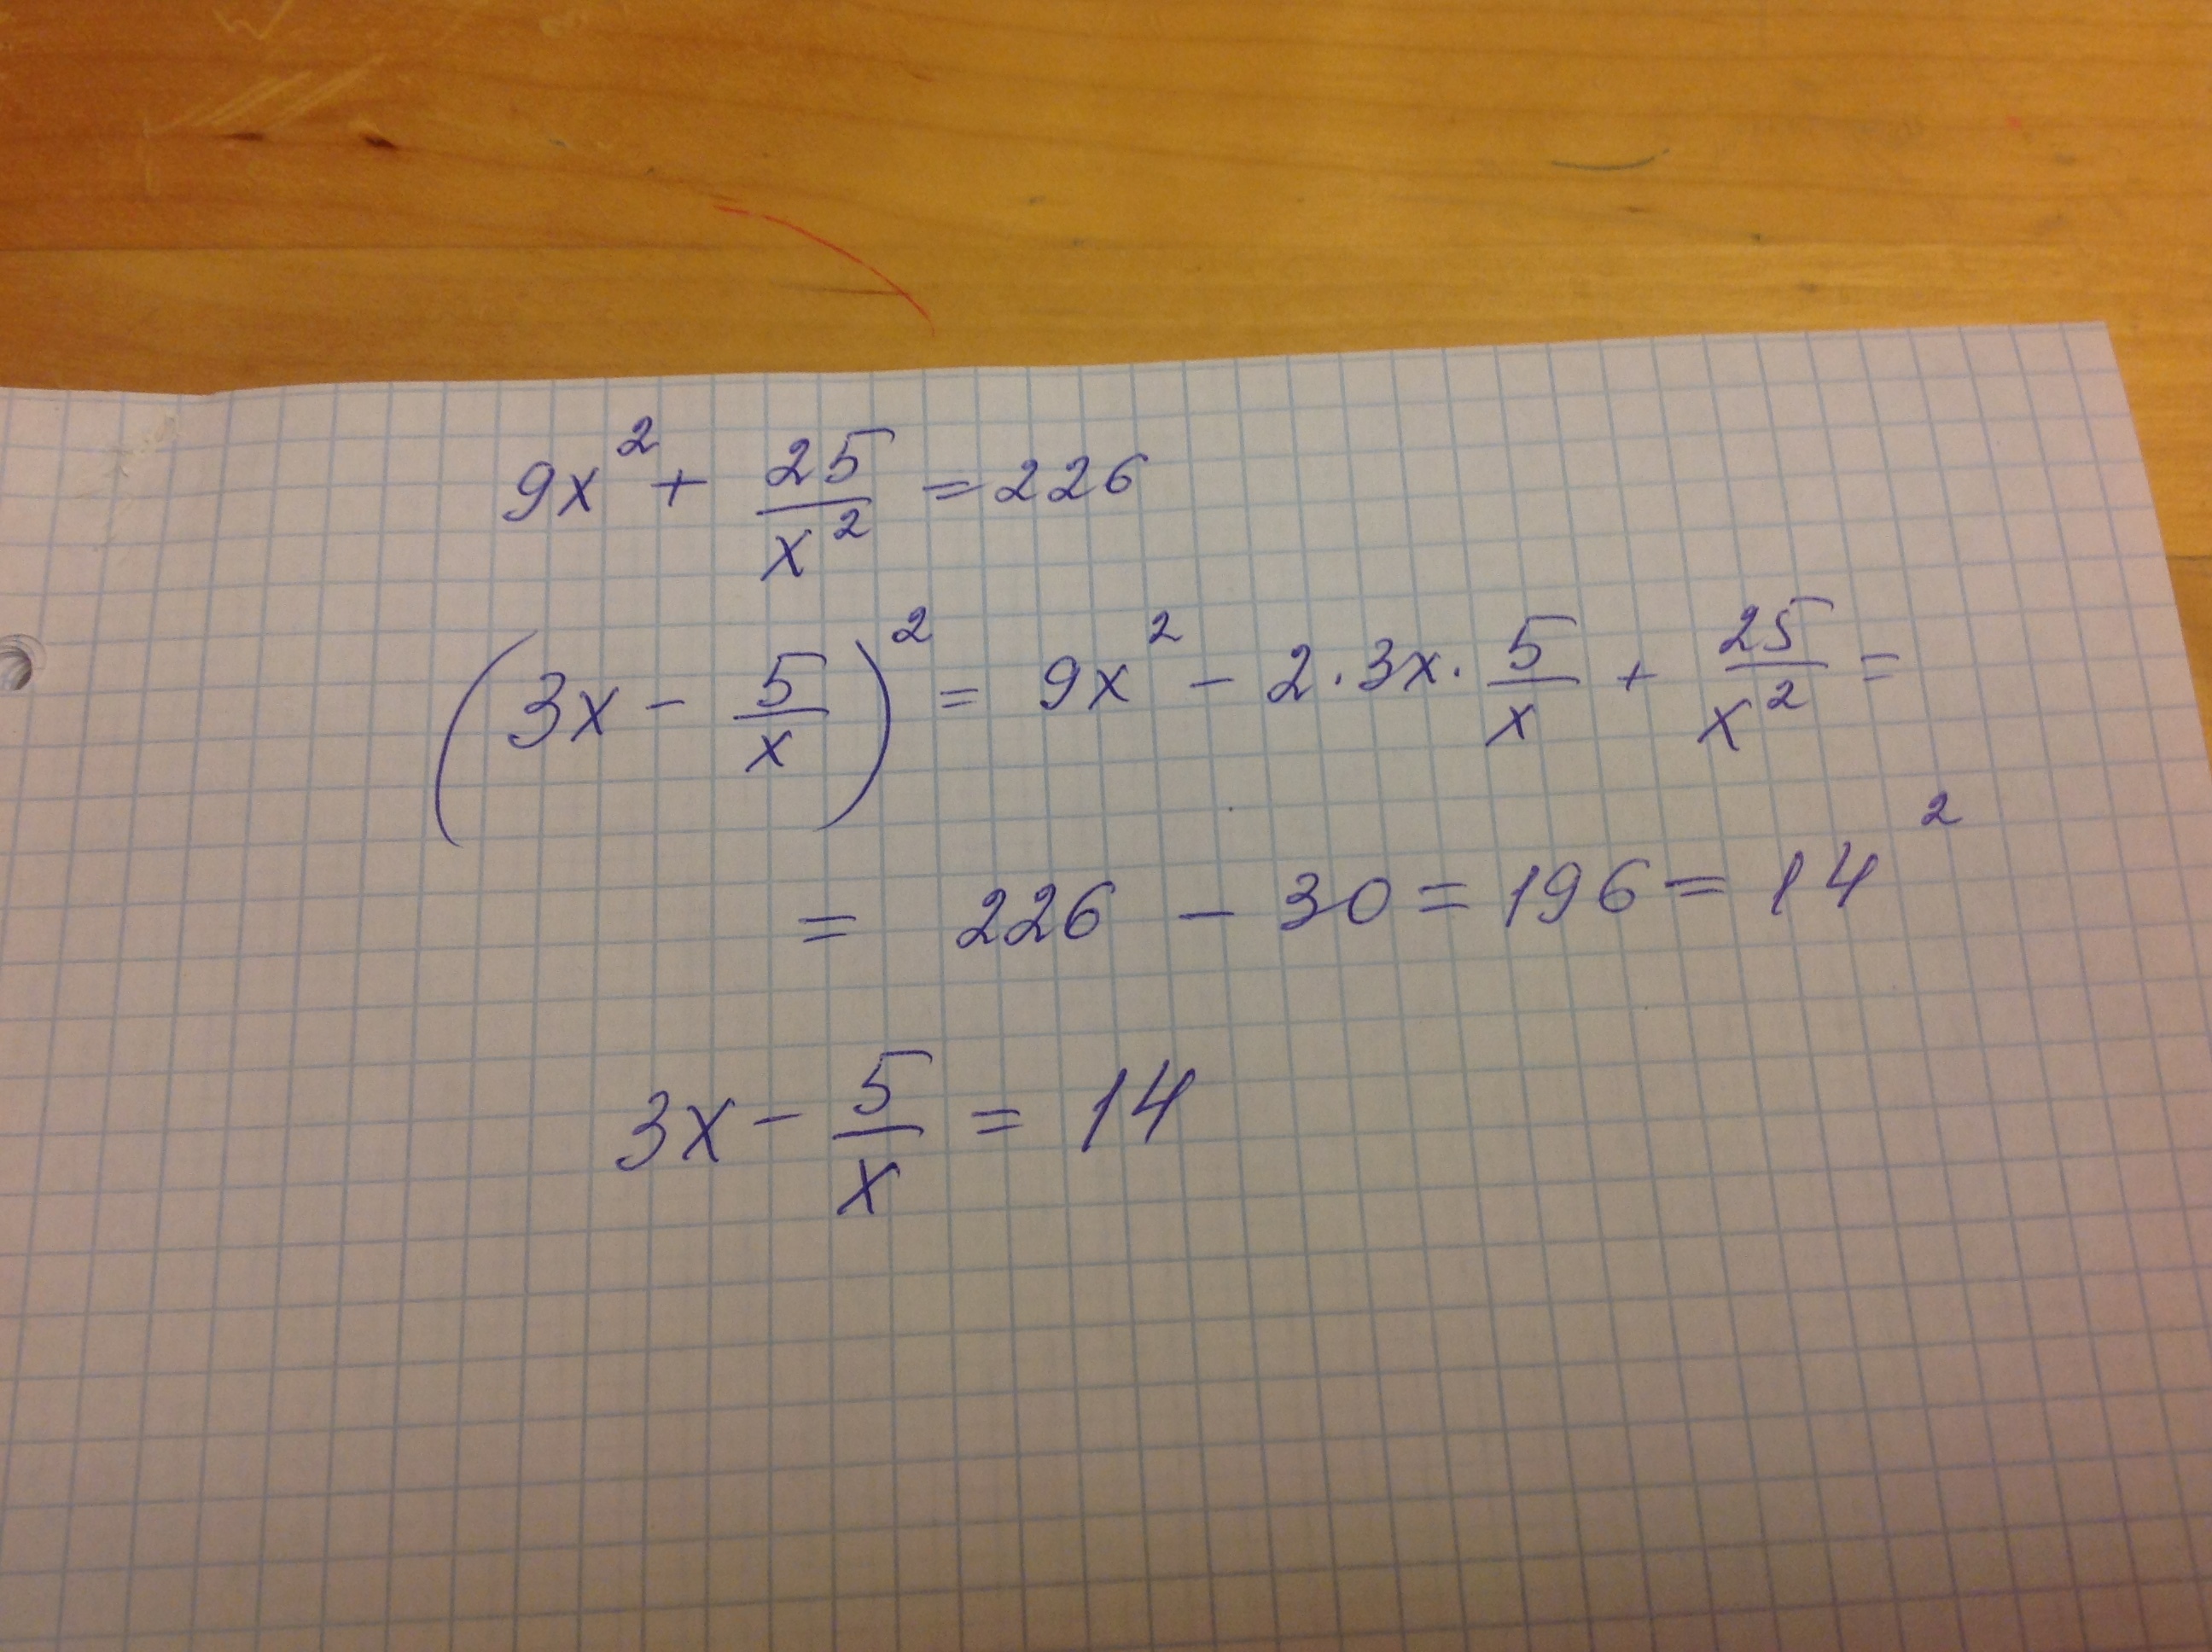 9x² + 25/x² = 226
(3x - 5/x)² = 9x² - 2·3x·5/x + 25/x² =
= 226 - 30 = 196 = 14²
3x - 5/x = 14